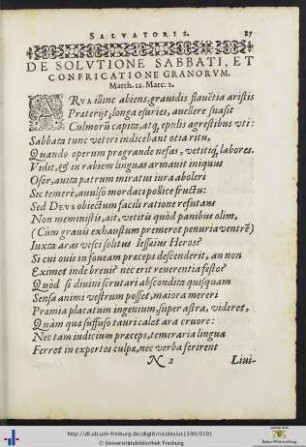 SALVATORIS. 87
DE SOLVTIONE SABBATI, ET
CONFRICATIONE GRANORVM.
Matth. 12. Marc. 2.
ARVA illinc abiens, grauidis flauētia aristis
Præterijt, longa esuries, auellere suasit
Culmorū capita, atq; epulis agrestibus vti:
Sabbata tunc veteri indicebant otia ritu,
Quando operum pragrande nefas, vetitiq́; labores.
Vidit, & in rabiem linguas armauit iniquus
Osor, auita patrum miratus iura aboleri
Sic temerè, auulso mordaci pollice fructu:
Sed DEVS obiectum facili ratione refutans
Non meministis, ait, vetitū quòd panibus olim,
(Cùm grauis exhaustum premeret penuria ventrē)
Iuxta aras vesci solitus Iessaius Heros?
Si cui ouis in foueam præceps descenderit, an non
Eximet inde breui? nec erit reuerentia festo?
Quòd si diuini scrutari abscondita quisquam
Sensa animi vestrum posset, maiora mereri
Præmia placatum ingenium, super astra, videret,
Quàm quæ suffuso tauri calet ara cruore:
Nec tam iudicium præceps, temeraria lingua
Ferret in expertes culpa, nec verba ferirent
N 2 Liui-
http://dl.ub.uni-freiburg.de/diglit/nicolasius1590/0101
© Universitätsbibliothek Freiburg
Baden-Württemberg